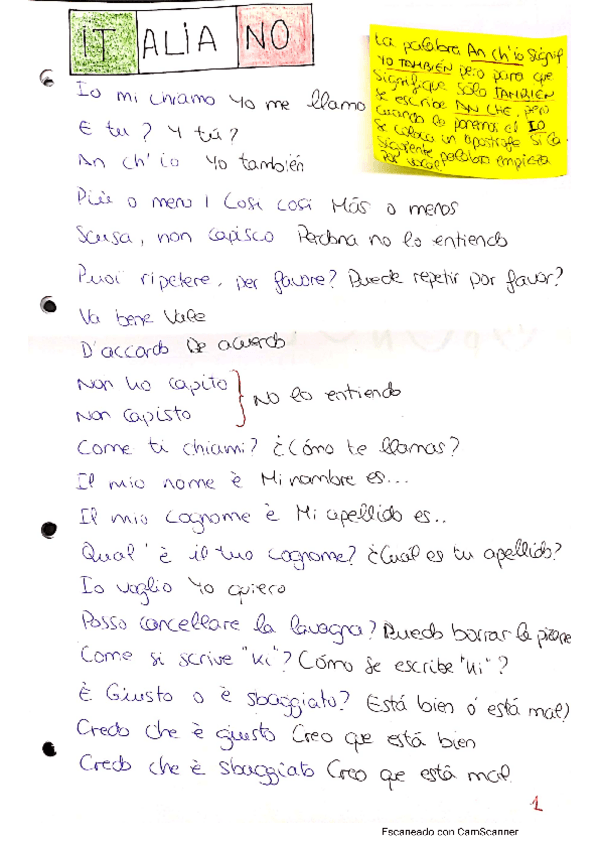 ITALIANO
La palabra An ch'io signif.
YO TAMBIÉN pero para que
signifique sólo TAMBIÉN
se escribe AN CHE, pero
cuando lo ponemos el IO
se coloca un apostrofe si la
siguiente palabra empieza
por vocal
Io mi chiamo Yo me llamo
E tu? Y tú?
An ch' io Yo también
Più o meno / Cosi cosi Más o menos
Scusa, non capisco Perdona no lo entiendo
Puoi ripetere, per favore? Puede repetir por favor?
Va bene Vale
D'accordo De acuerdo
Non ho capito
Non capisto
No lo entiendo
Come ti chiami? ¿Cómo te llamas?
Il mio nome è Mi nombre es...
Il mio cognome è Mi apellido es..
Qual' è il tuo cognome? ¿Cuál es tu apellido?
Io voglio Yo quiero
Posso cancellare la lavagna? Puedo borrar la pizarra
Come si scrive "Ki"? Cómo se escribe "Ki"?
È Giusto o è sbaggiato? Está bien ó está mal)
Credo che è giusto Creo que está bien
Credo che è sbaggiato Creo que está mal
1
Escaneado con CamScanner